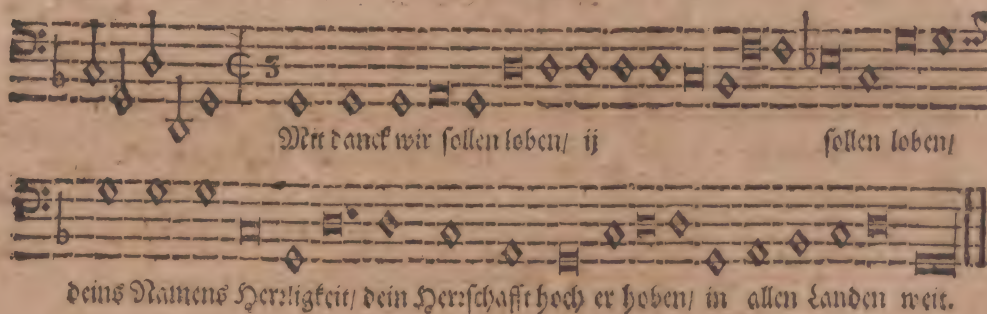 Mit danck wir sollen loben/ ij sollen loben/
deins Namens Herrligkeit/ dein Herrschafft hoch er hoben/ in allen Landen weit.